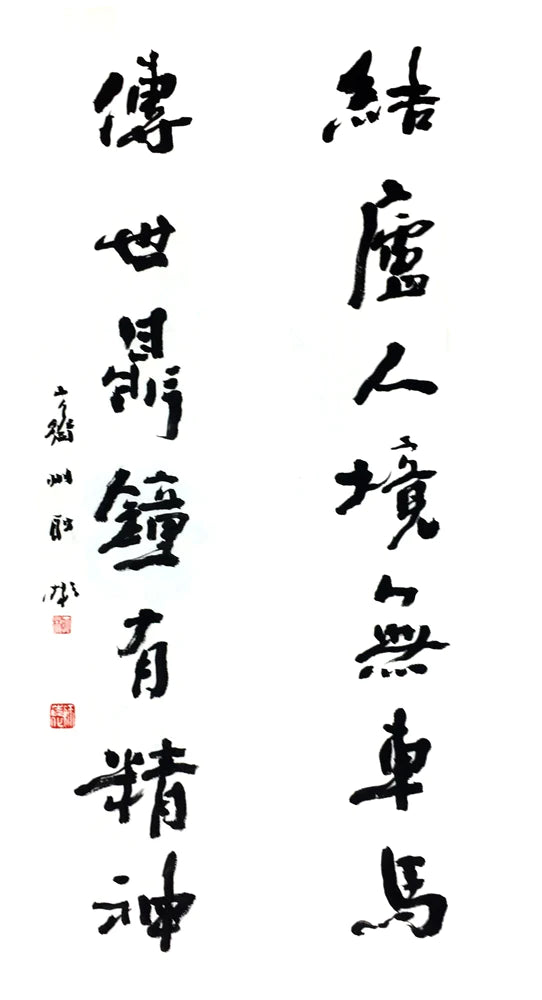 結廬人境無車馬
傳世鼎鐘有精神
齊州耿彬